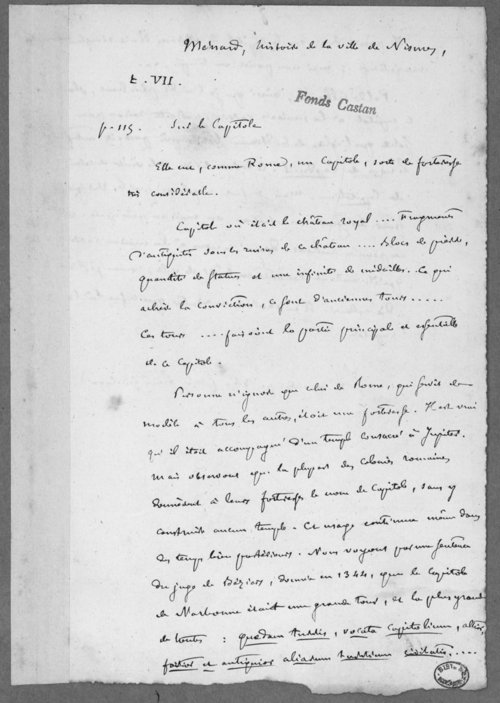 Ménard, histoire de la ville de Nismes,
t. VII.
Fonds Castan
p. 115. Sur le Capitole
Elle eut, comme Rome, un Capitole, sorte de forteresse
très considérable.
Capitole où était le château royal .... Fragments
d'antiquités sous les ruines de ce château .... Blocs de pierre,
quantité de statues et une infinité de médailles. Ce qui
achève la conviction, ce sont d'anciennes tours .....
Ces tours .... faisoient la partie principale et essentielle
de ce Capitole.
Personne n'ignore que celui de Rome, qui servit de
modèle à tous les autres, étoit une forteresse. Il est vrai
qu'il étoit accompagné d'un temple consacré à Jupiter.
Mais observons que la plupart des colonies romaines
donnèrent à leurs forteresses le nom de Capitole, sans y
construire aucun temple. Cet usage continua même dans
des temps bien postérieurs. Nous voyons par une sentence
du juge de Béziers, donnée en 1344, que le Capitole
de Narbonne étoit une grande tour, et la plus grande
de toutes : quædam turris, vocata capitolium, altior,
fortior et antiquior aliarum turrium civitatis ....